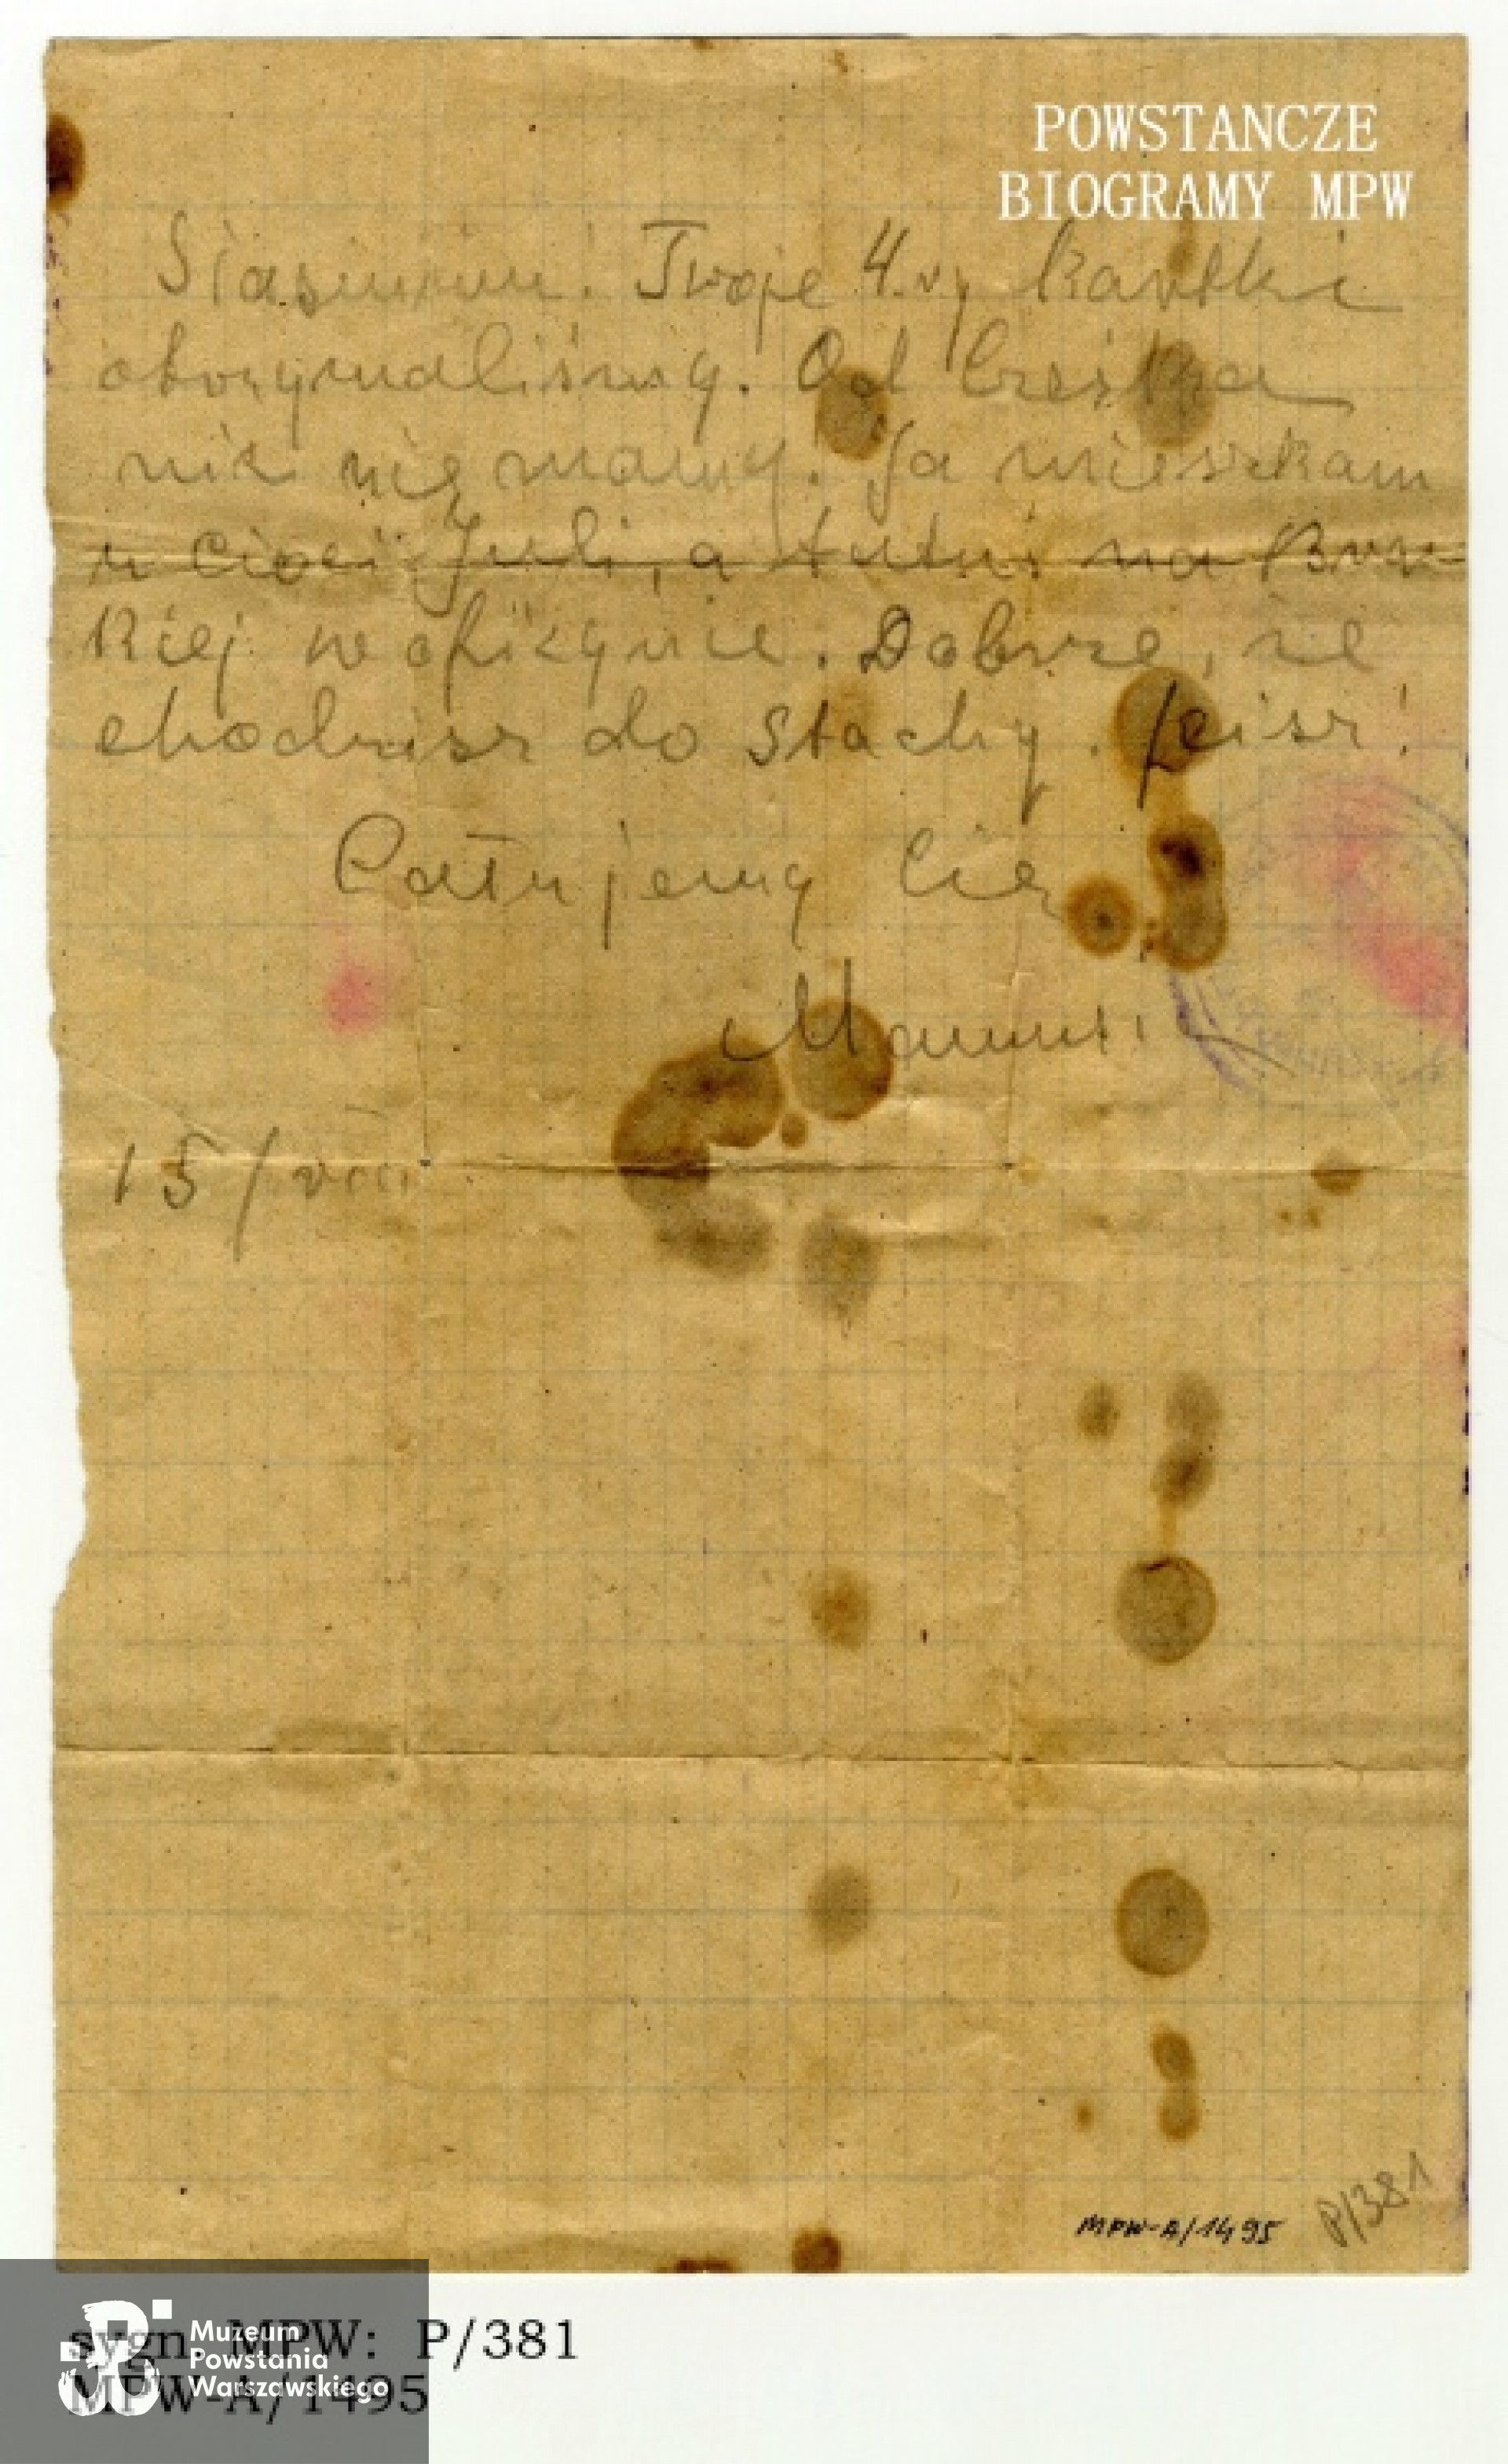 POWSTANCZE
BIOGRAMY MPW
Twoje 4.ry kartki
otrzymaliśmy. Od Cześka
nic nie mamy. Ja mieszkam
u Cioci Juli, a tatuś na Brac-
kiej w oficynie. Dobrze, że
chodzisz do Stachy. Pisz!
Całujemy Cię
Mamusia
15/VIII
MPW-A/1495
P/381
sygn. MPW: P/381
MPW-A/1495
Muzeum
Powstania
Warszawskiego